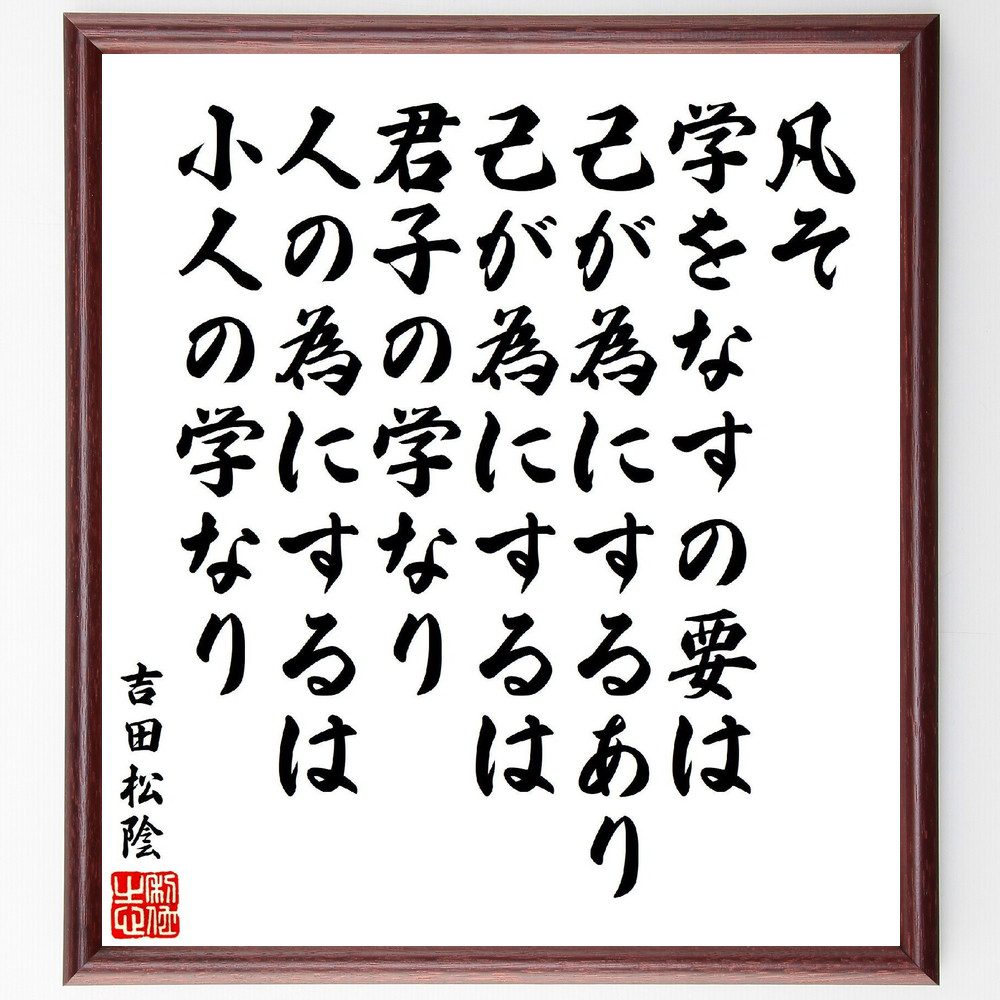 凡そ
学をなすの要は
己が為にするあり
己が為にするは
君子の学なり
人の為にするは
小人の学なり
吉田松陰